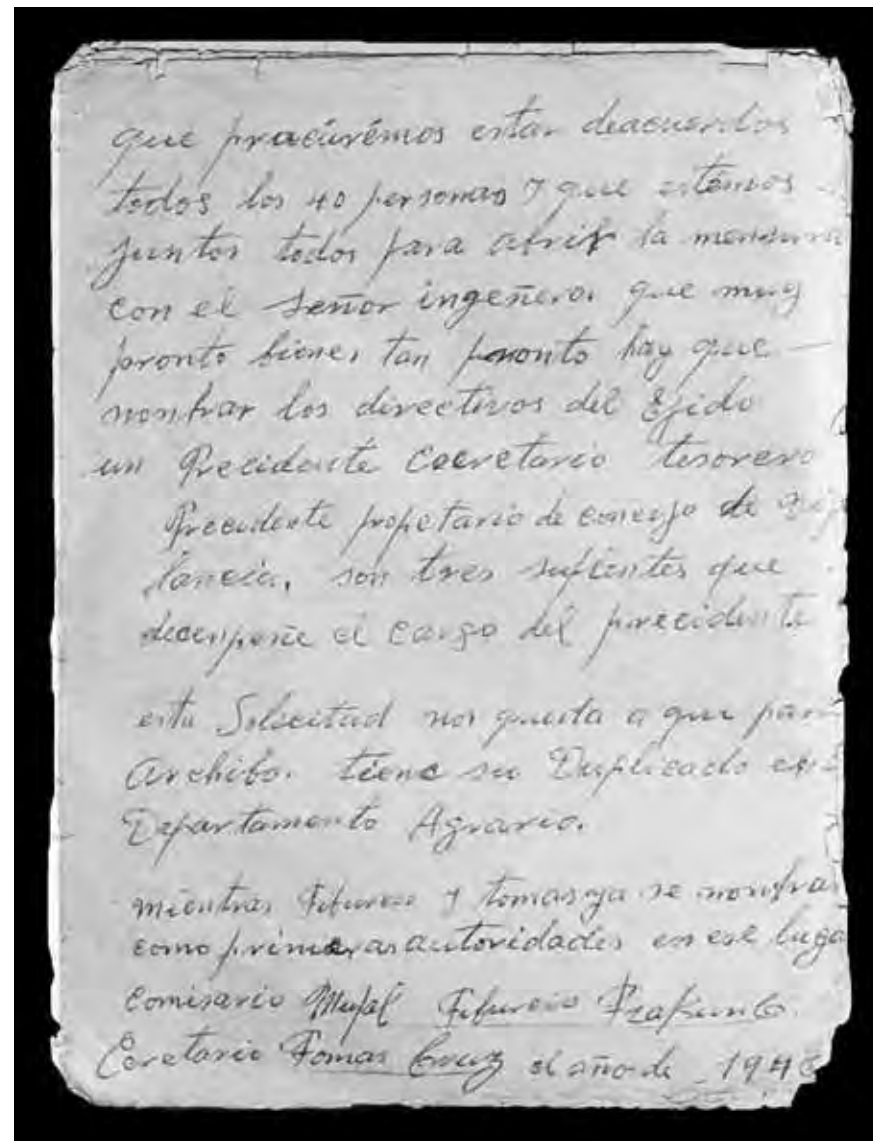 que procurémos estar deacuerdos
todos los 40 personas y que estémos
juntos todos para abrir la mensura
con el señor ingeñero. que muy
pronto biene, tan pronto hay que
nonbrar los directivos del Ejido
un Precidente Cecretario tesorero
Precidente propetario de concejo de
lancia, son tres suplentes que
decenpeñe el cargo del precidente
esta Solicitud nos queda a qui para
Archibo. tiene su Duplicado en
Departamento Agrario.
mientras Tiburcio y tomas ya se nonbra
como primeras autoridades en ese luga
Comisario Mupal Tiburcio
Cecretario Tomas Cruz el año de 194